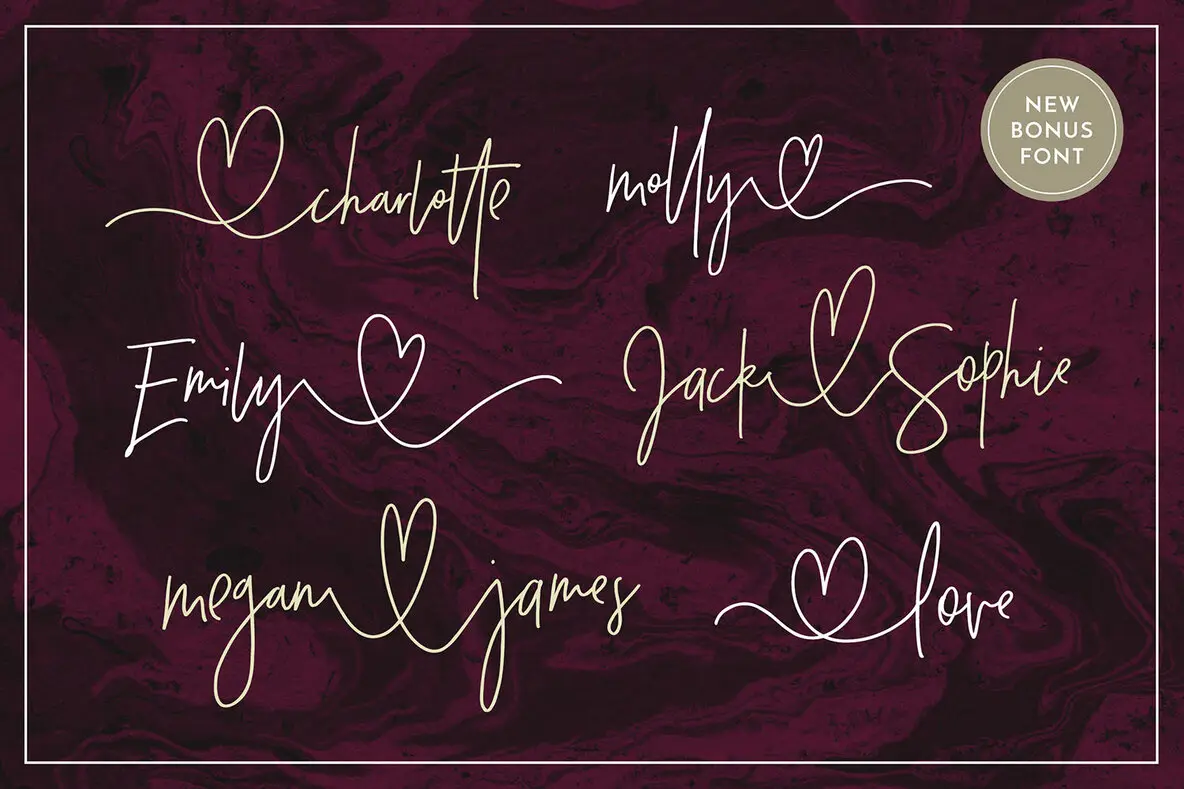 NEW
BONUS
FONT
charlotte
molly
Emily
Jack Sophie
megan james
love